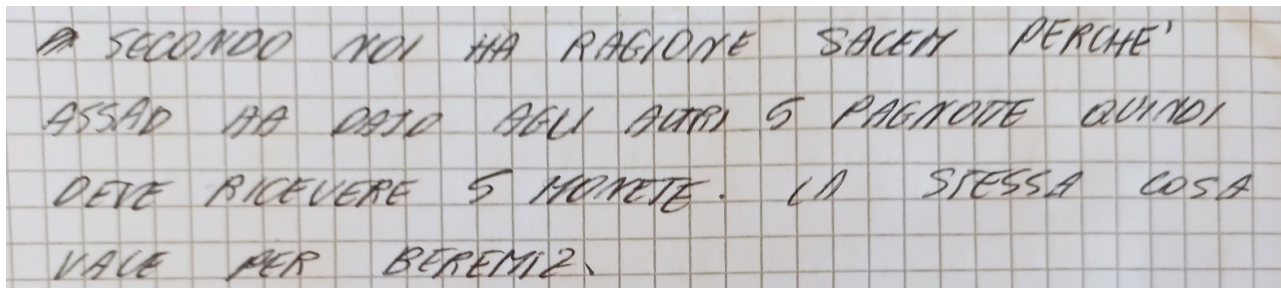 SECONDO NOI HA RAGIONE SALEM PERCHE'
ASSAD HA DATO AGLI ALTRI 5 PAGNOTTE QUINDI
DEVE RICEVERE 5 MONETE. LA STESSA COSA
VALE PER BEREMIZ.